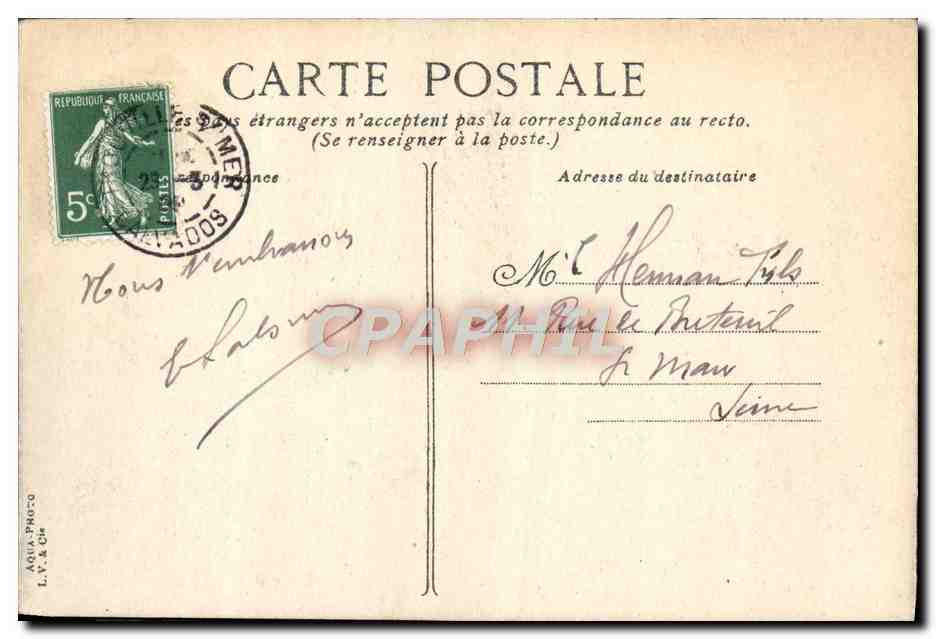 CARTE POSTALE
es pays étrangers n'acceptent pas la correspondance au recto.
(Se renseigner à la poste.)
REPUBLIQUE FRANÇAISE
5c
POSTES
S/ MER
CALVADOS
respondance
Adresse du destinataire
Nous
Herman Fils
11 Rue de Breteuil
St Maur
Seine
CPAPHIL
AQUA-PHOTO
L. V. & Cie